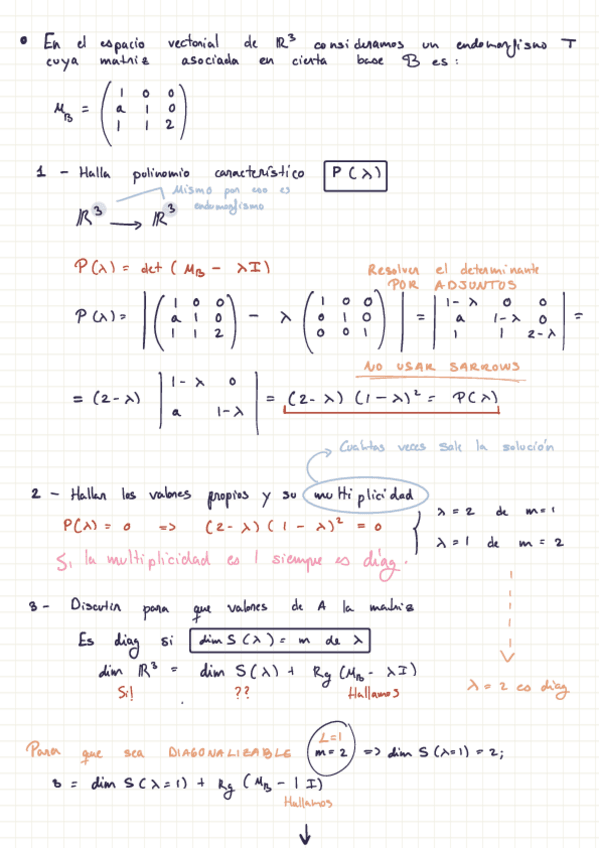 • En el espacio vectorial de ℝ³ consideramos un endomorfismo T
cuya matriz asociada en cierta base B es:
M_B = ( 1 0 0 ; a 1 0 ; 1 1 2 )
1 - Halla polinomio característico P(λ)
Mismo por eso es
endomorfismo
ℝ³ → ℝ³
P(λ) = det ( M_B - λI )
Resolver el determinante
POR ADJUNTOS
P(λ) = | ( 1 0 0 ; a 1 0 ; 1 1 2 ) - λ ( 1 0 0 ; 0 1 0 ; 0 0 1 ) | = | 1-λ 0 0 ; a 1-λ 0 ; 1 1 2-λ | =
NO USAR SARROWS
= (2-λ) | 1-λ 0 ; a 1-λ | = (2-λ) (1-λ)² = P(λ)
Cuántas veces sale la solución
2 - Hallar los valores propios y su multiplicidad
P(λ) = 0 => (2-λ) (1-λ)² = 0
λ = 2 de m=1
λ = 1 de m = 2
Si la multiplicidad es 1 siempre es diag.
3 - Discutir para que valores de A la matriz
Es diag si dim S(λ) = m de λ
dim ℝ³ = dim S(λ) + Rg (M_B - λI)
Si! ?? Hallamos
λ = 2 es diag
Para que sea DIAGONALIZABLE L=1 m=2 => dim S(λ=1) = 2;
3 = dim S(λ=1) + Rg (M_B - 1 I)
Hallamos
↓